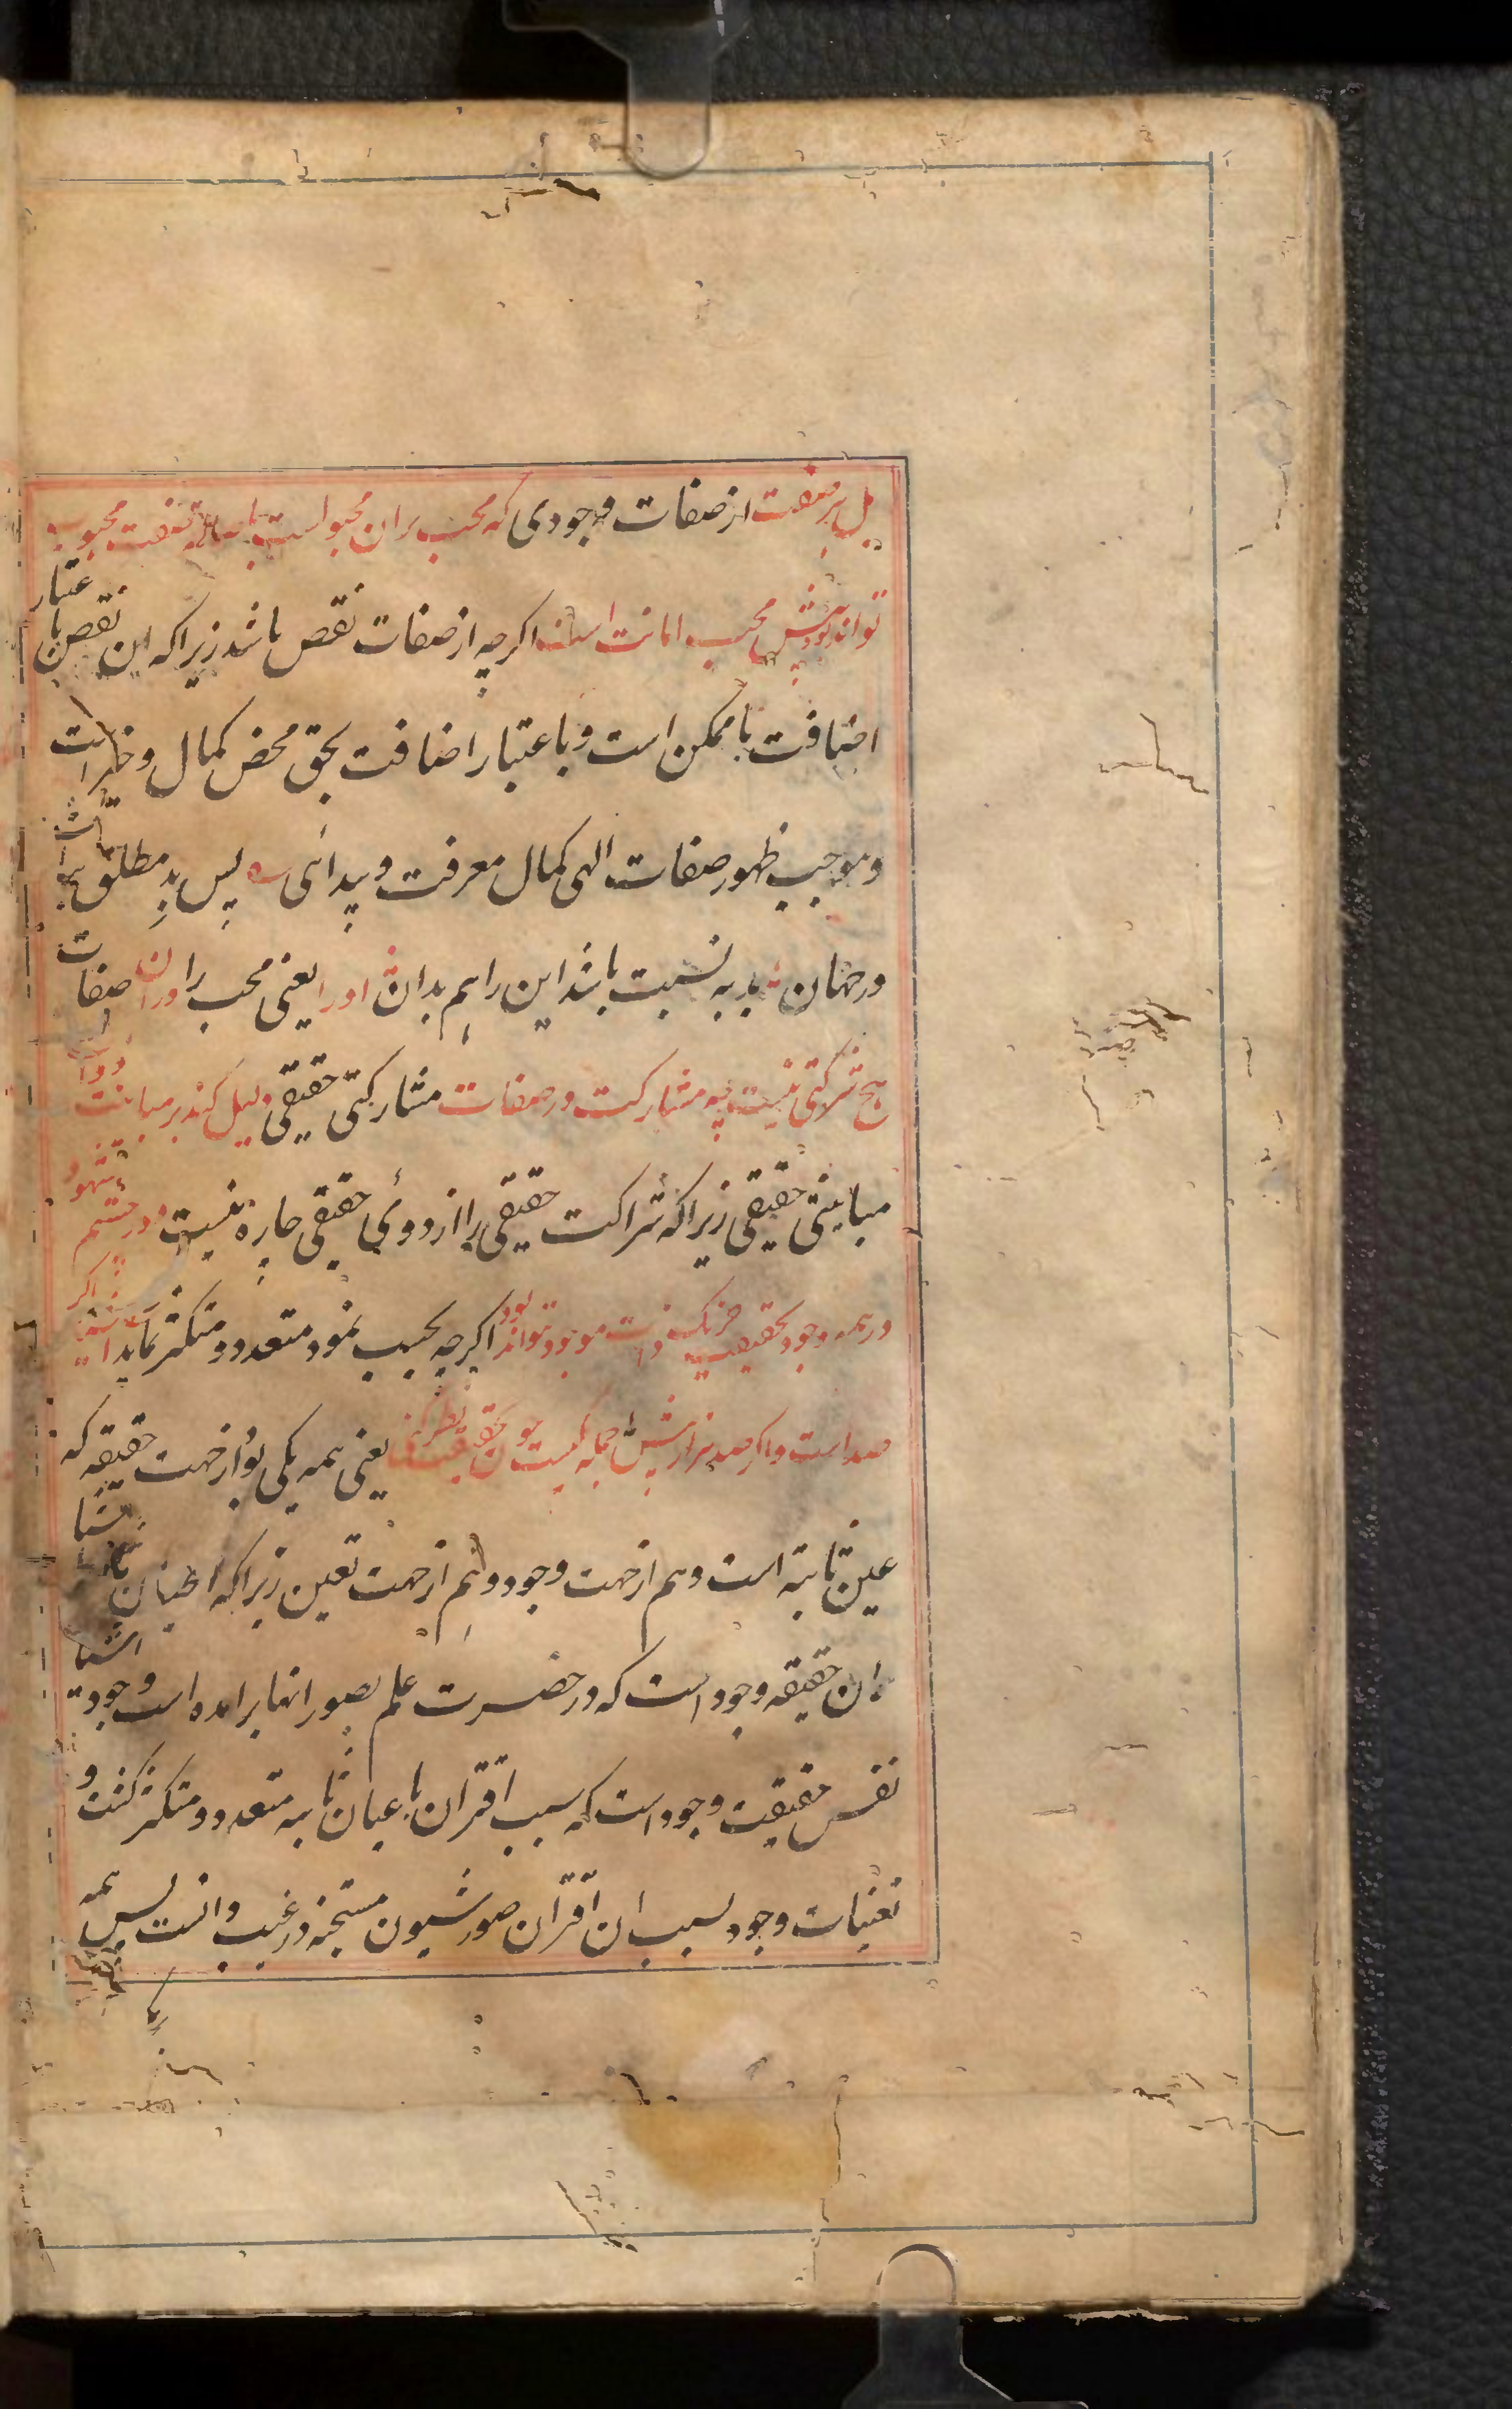 بل هر صفت از صفات وجودی که محب بران مجبو است باصاله صفت محبوب
تواند بود پیش محب امانت است اکرچه از صفات نقص باشد زیرا که این نقص باعتبار
اضافت با ممکن است و باعتبار اضافت بحق محض کمال و خیر است
و موجب ظهور صفات الهی کمال معرفت و پیدائی پس بد مطلق نباشد
در جهان بد به نسبت باشد این را هم بدان او را یعنی محب را دران صفات
هیچ شرکتی نیست چه مشارکت در صفات مشارکتی حقیقی دلیل کند بر مباینت ذوات
مباینتی حقیقی زیرا که شراکت حقیقی را از دوئی حقیقی چاره نیست و در چشم شهود
در همه وجود بحقیقت جز یک ذات موجود نتواند بود اکرچه بحسب نمود متعدد و متکثر نماید اکر
صد است و اکر صد هزار بیش جمله یکیست چون بحقیقت نظر کنی یعنی همه یکی بود از جهت حقیقه که
عین ثابته است و هم از جهت وجود و هم از جهت تعین زیرا که اعیان ثابته اشیا
ان حقیقه وجود است که در حضرت علم بصور انها برامده است وجود اشیا
نفس حقیقت وجود است که سبب اقتران باعیان ثابته متعدد و متکثر کشت و
تعینات وجود بسبب ان اقتران صور شیون مستجنه در غیب ذاتست پس همه